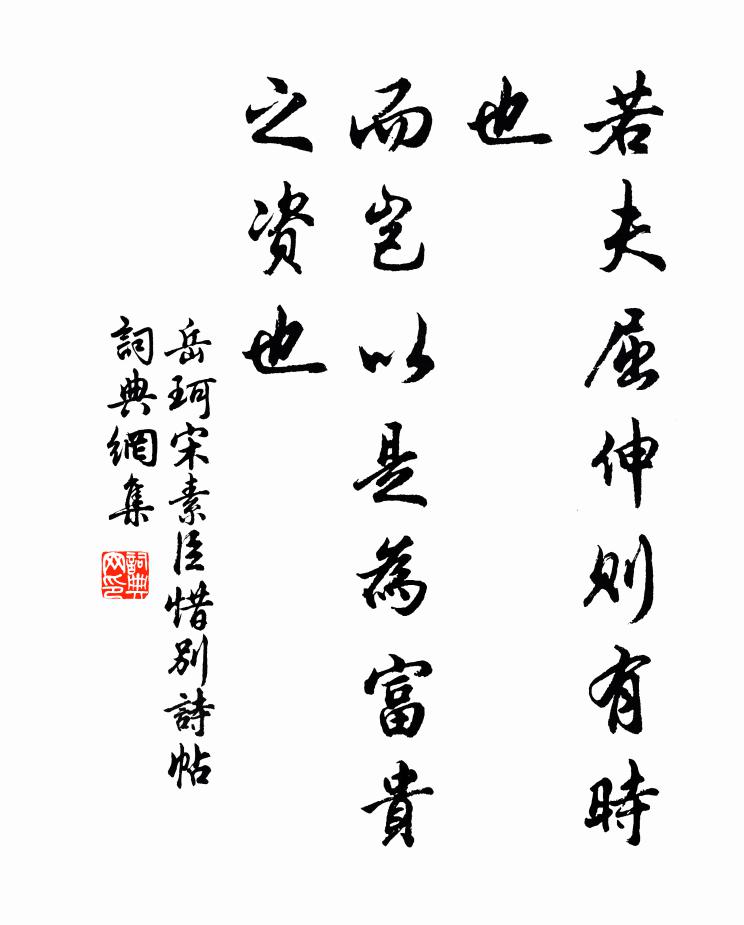 若夫屈伸則有時
也
而豈以是為富貴
之資也
岳珂宋素臣惜別詩帖
詞典網集
詞典網印